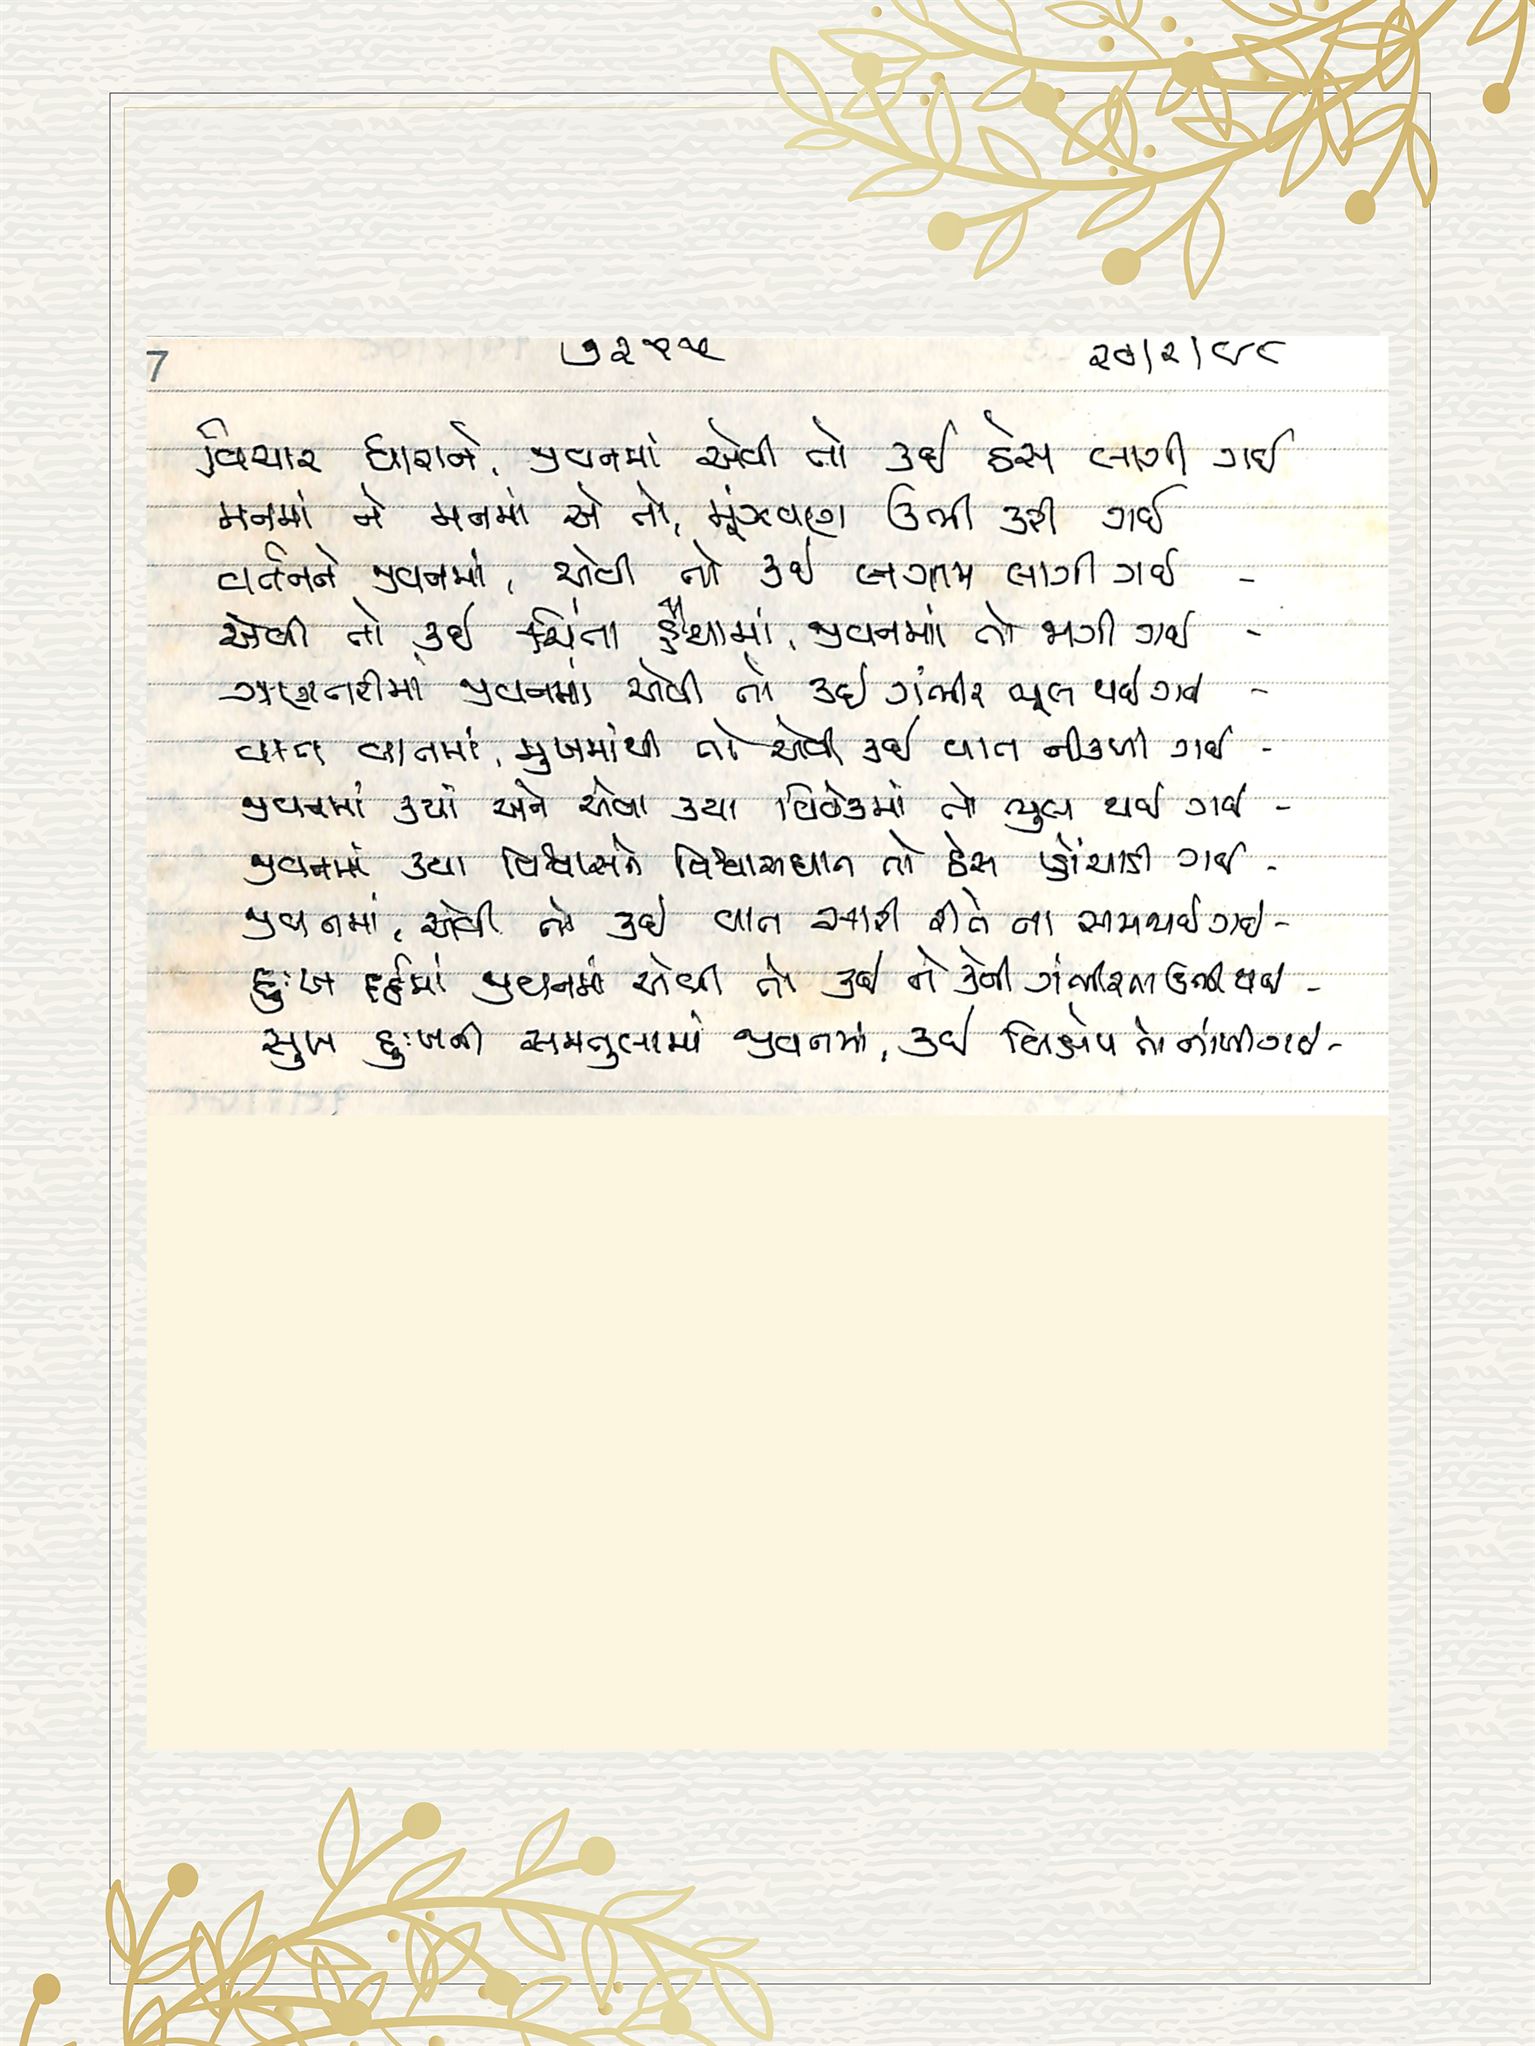 7 ૭૨૫૫ ૨૭/૨/૯૮
વિચાર ધારાને, જીવનમાં એવી તો કઈ ઠેસ લાગી ગઈ
મનમાં ને મનમાં એ તો, મૂંઝવણ ઉભી કરી ગઈ
વર્તનને જીવનમાં, એવી તો કઈ લગામ લાગી ગઈ -
એવી તો કઈ ચિંતા હૈયામાં, જીવનમાં તો ભગી ગઈ -
ગણતરીમાં જીવનમાં એવી તો કઈ ગંભીર ભૂલ થઈ ગઈ -
વાત વાતમાં, મુખમાંથી તો એવી કઈ વાત નીકળી ગઈ -
જીવનમાં ક્યાં અને એવા કયા વિવેકમાં તો ભુલ થઈ ગઈ -
જીવનમાં કયા વિશ્વાસને વિશ્વાસઘાત તો ઠેસ પ્હોંચાડી ગઈ -
જીવનમાં, એવી તો કઈ વાત સારી રીતે ના સમજાઈ ગઈ -
દુઃખ દર્દમાં જીવનમાં એવી તો કઈ ને કેવી ગંભીરતા ઉભી થઈ -
સુખ દુઃખની સમતુલામાં જીવનમાં, કઈ વિક્ષેપ તો નાંખી ગઈ -